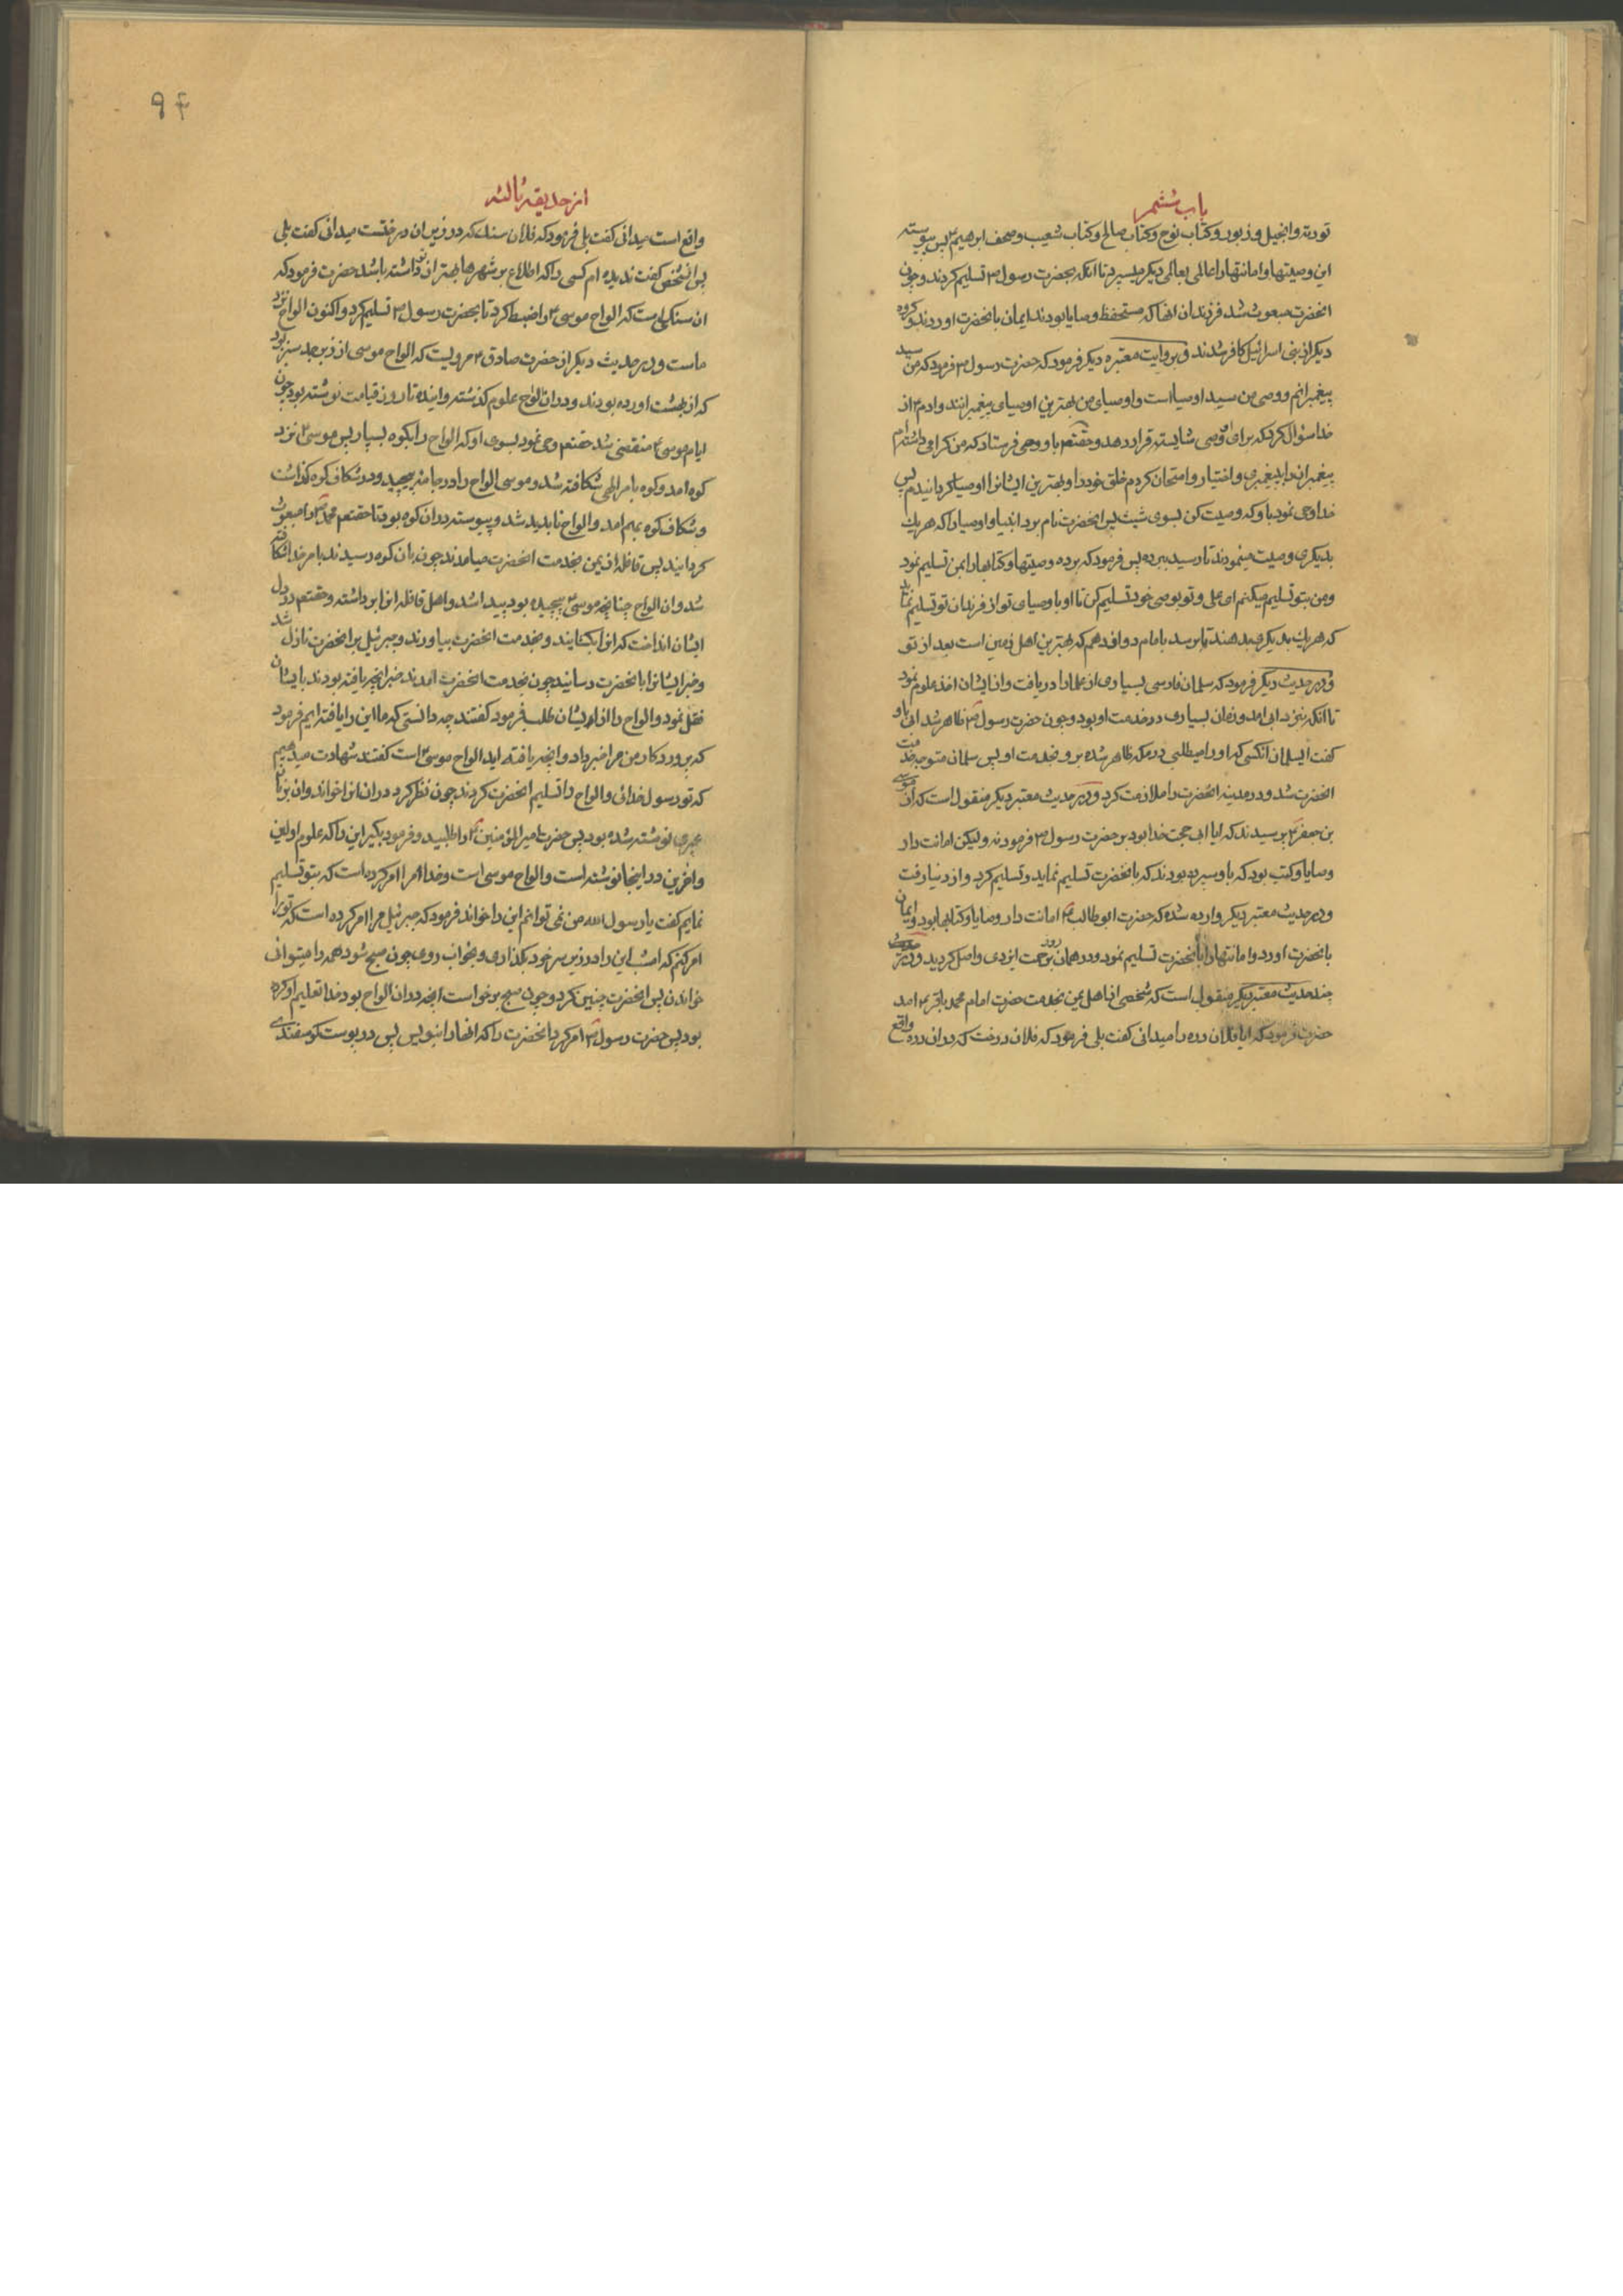 باب ششم
توریة وانجیل وزبور وکتاب نوح وکتاب صالح وکتاب شعیب وصحف ابرهیم ع پس پیوسته
این وصیتها وامانتها را عالمی بعالمی دیگر میسپرد تا انکه بحضرت رسول ص تسلیم کردند وچون
انحضرت مبعوث شد فرزندان انها که مستحفظ وصایا بودند ایمان بانحضرت اوردند وکروه
دیکر از بنی اسرائیل کافر شدند وبروایت معتبره دیکر فرمود که حضرت رسول ص فرمود که من سید
پیغمبرانم ووصی من سید اوصیا است واوصیای من بهترین اوصیای پیغمبرانند وادم ع از
خدا سؤال کرد که برای او وصی شایسته قرار دهد وحقتعم باو وحی فرستاد که من کرامی داشته‌ام
پیغمبران را به پیغمبری واختیار وامتحان کردم خلق خود را وبهترین ایشانرا اوصیا کردانیدم پس
خدا وحی نمود باو که وصیت کن بسوی شیث پس انحضرت نام برد انبیا واوصیا را که هریک
بدیکری وصیت مینمودند تا رسید ببرده پس فرمود که برده وصیتها وکتابها را بمن تسلیم نمود
ومن بتو تسلیم میکنم ای علی وتو بوصی خود تسلیم کن تا او باوصیای تو از فرزندان تو تسلیم نماید
که هریک بدیکری بدهند تا برسد بامام دوازدهم که بهترین اهل زمین است بعد از تو
ودر حدیث دیکر فرمود که سلمان فارسی بسیاری از علما را دریافت واز ایشان اخذ علوم نمود
تا انکه بنزد ابی امد وزمان بسیاری در خدمت او بود وچون حضرت رسول ص ظاهر شد ابی باو
کفت ایسلمان انکسی که او را میطلبی در مکه ظاهر شده برو بخدمت او پس سلمان متوجه خدمت
انحضرت شد ودر مدینه انحضرت را ملازمت کرد ودر حدیث معتبر دیکر منقول است که از موسی
بن جعفر ع پرسیدند که ایا ابی حجت خدا بود بر حضرت رسول ص فرمود نه ولیکن امانت دار
وصایا وکتب بود که باو سپرده بودند که بانحضرت تسلیم نماید وتسلیم کرد واز دنیا رفت
ودر حدیث معتبر دیکر وارده شده که حضرت ابو طالب ع امانت دار وصایا وکتابها بود وایمان
بانحضرت اورد وامانتها را بانحضرت تسلیم نمود ودر همان روز برحمت ایزدی واصل کردید ودر
چند حدیث معتبر دیکر منقول است که شخصی از اهل یمن بخدمت حضرت امام محمد باقر ع امد
حضرت فرمود که ایا فلان دره را میدانی کفت بلی فرمود که فلان درخت که در ان دره واقع
از حدیقه ثالثه
واقع است میدانی کفت بلی فرمود که فلان سنک که در زیر ان درختست میدانی کفت بلی
پس انشخص کفت ندیده ام کسی را که اطلاع بر شهرها بهتر از تو داشته باشد حضرت فرمود که
ان سنکیست که الواح موسی ع را ضبط کرد تا بحضرت رسول ص تسلیم کرد واکنون الواح نزد
ماست ودر حدیث دیکر از حضرت صادق ع مرویست که الواح موسی از زبرجد سبز بود
که از بهشت اورده بودند ودر ان لوح علوم کذشته واینده تا روز قیامت نوشته بود چون
ایام موسی ع منقضی شد حقتعم وحی نمود بسوی او که الواح را بکوه بسپار پس موسی ع نزد
کوه امد وکوه بامر الهی شکافته شد وموسی الواح را در جامه پیچید ودر شکاف کوه کذاشت
وشکاف کوه بهم امد والواح نابدید شد وپیوسته در ان کوه بود تا حقتعم محمد ص را مبعوث
کردانید پس قافله از یمن بخدمت انحضرت میامدند چون بان کوه رسیدند بامر خدا شکافته
شد وان الواح چنانچه موسی ع پیچیده بود پیدا شد واهل قافله انرا برداشته وحقتعم در دل
ایشان انداخت که انرا نکشایند وبخدمت انحضرت بیاورند وجبرئیل بر انحضرت نازل شد
وخبر ایشانرا بانحضرت رسانید چون بخدمت انحضرت امدند خبر انچه یافته بودند بایشان
نقل نمود والواح را از ایشان طلب فرمود کفتند چه دانستی که ما این را یافته ایم فرمود
که پروردکار من مرا خبر داد وانچه یافته اید الواح موسی ع است کفتند شهادت میدهیم
که تو رسول خدائی والواح را تسلیم انحضرت کردند چون نظر کرد در ان انرا خواند وان بزبان
عبری نوشته شده بود پس حضرت امیر المؤمنین ع را طلبید وفرمود بکیر این را که علوم اولین
واخرین در اینجا نوشته است والواح موسی است وخدا مرا امر کرده است که بتو تسلیم
نمایم کفت یا رسول الله من نمی توانم این را خواند فرمود که جبرئیل مرا امر کرده است که ترا
امر کنم که امشب این را در زیر سر خود بکذاری وبخواب روی چون صبح شود همه را میتوانی
خواندن پس انحضرت چنین کرد وچون صبح برخواست انچه در ان الواح بود خدا تعلیم او کرده
بود پس حضرت رسول ص امر کرد انحضرت را که انها را بنویس پس در پوست کوسفندی